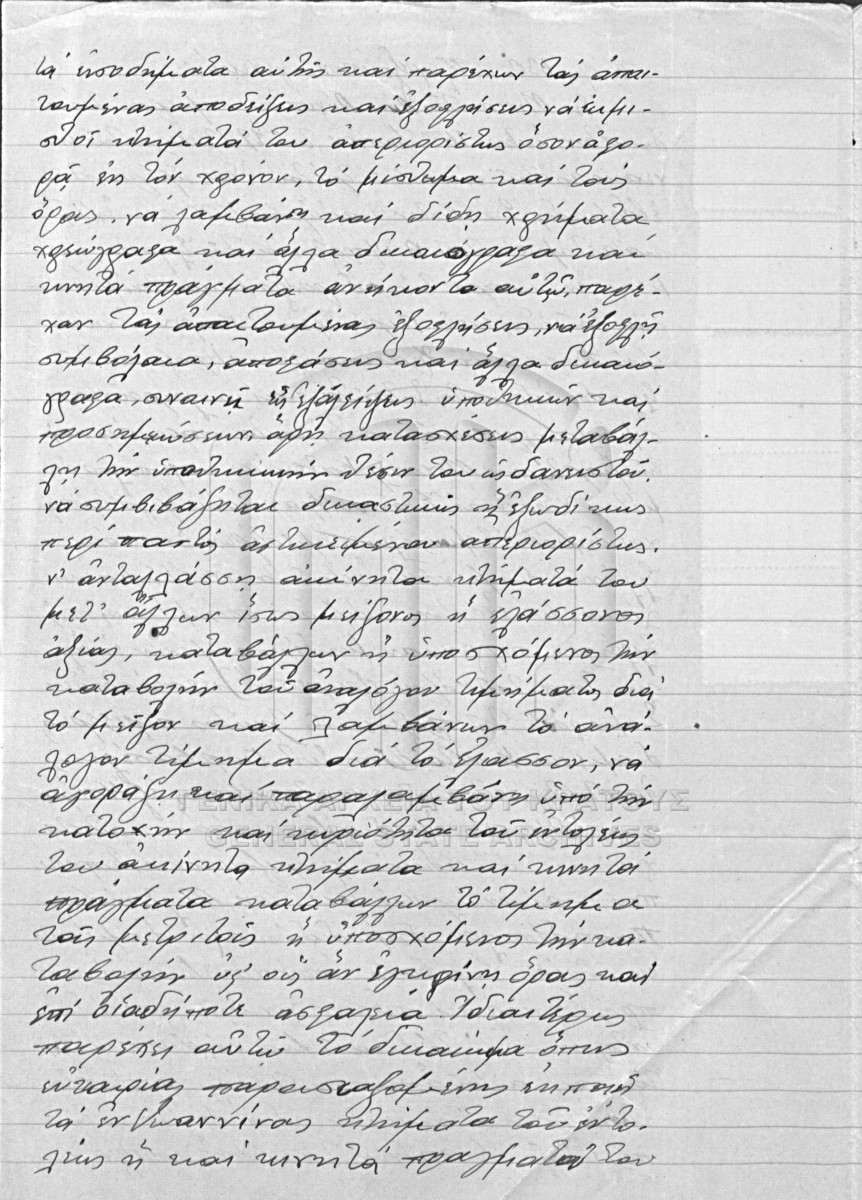 τά εἰσοδήματα αὐτῆς καί παρέχων τάς ἀπαι-
τουμένας ἀποδείξεις καί ἐξοφλήσεις, νά ἐκμι-
σθοῖ κτήματά του ἀπεριορίστως ὅσον ἀφο-
ρᾷ εἰς τόν χρόνον, τό μίσθωμα καί τούς
ὅρους, νά λαμβάνῃ καί δίδῃ χρήματα
χρεώγραφα καί ἄλλα δικαιόγραφα καί
κινητά πράγματα ἀνήκοντα αὐτῷ, παρέ-
χων τάς ἀπαιτουμένας ἐξοφλήσεις, νά ἐξοφλῇ
συμβόλαια, ἀποφάσεις καί ἄλλα δικαιό-
γραφα, συναινῇ εἰς ἐξαλείψεις ὑποθηκῶν καί
προσημειώσεων, ἄρῃ κατασχέσεις, μεταβάλ-
λῃ τήν ὑποθηκικήν θέσιν του ὡς δανειστοῦ,
νά συμβιβάζηται δικαστικῶς ἤ ἐξωδίκως
περί παντός ἀντικειμένου ἀπεριορίστως,
ν' ἀνταλλάσσῃ ἀκίνητα κτήματά του
μετ' ἄλλων ἴσης μείζονος ἤ ἐλάσσονος
ἀξίας, καταβάλλων ἤ ὑποσχόμενος τήν
καταβολήν τοῦ ἀναλόγου τιμήματος διά
τό μεῖζον καί λαμβάνων τό ἀνά-
λογον τίμημα διά τό ἔλασσον, νά
ἀγοράζῃ καί παραλαμβάνῃ ὑπό τήν
κατοχήν καί κυριότητα τοῦ ἐντολέως
του ἀκίνητα κτήματα καί κινητά
πράγματα καταβάλλων τό τίμημα
τοῖς μετρητοῖς ἤ ὑποσχόμενος τήν κα-
ταβολήν ὑφ' οὕς ἄν ἐγκρίνῃ ὅρους καί
ἐπί οἱαδήποτε ἀσφαλείᾳ. Ἰδιαιτέρως
παρέχει αὐτῷ τό δικαίωμα ὅπως
εὐκαιρίας παρουσιαζομένης ἐκποιῇ
τά ἐν Ἰωαννίνοις κτήματα τοῦ ἐντο-
λέως ἤ καί κινητά πράγματά του
ΓΕΝΙΚΑ ΑΡΧΕΙΑ ΤΟΥ ΚΡΑΤΟΥΣ
GENERAL STATE ARCHIVES